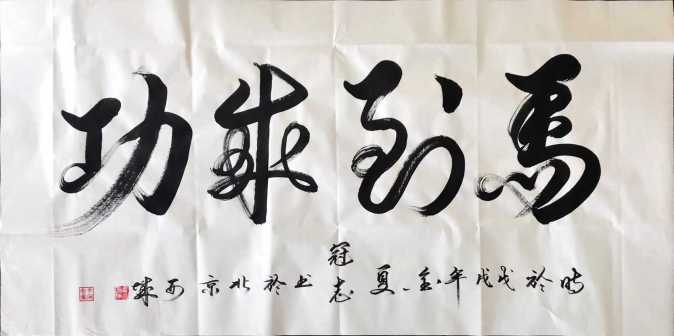 馬到成功
時於戊戌年夏冠志书於北京西城